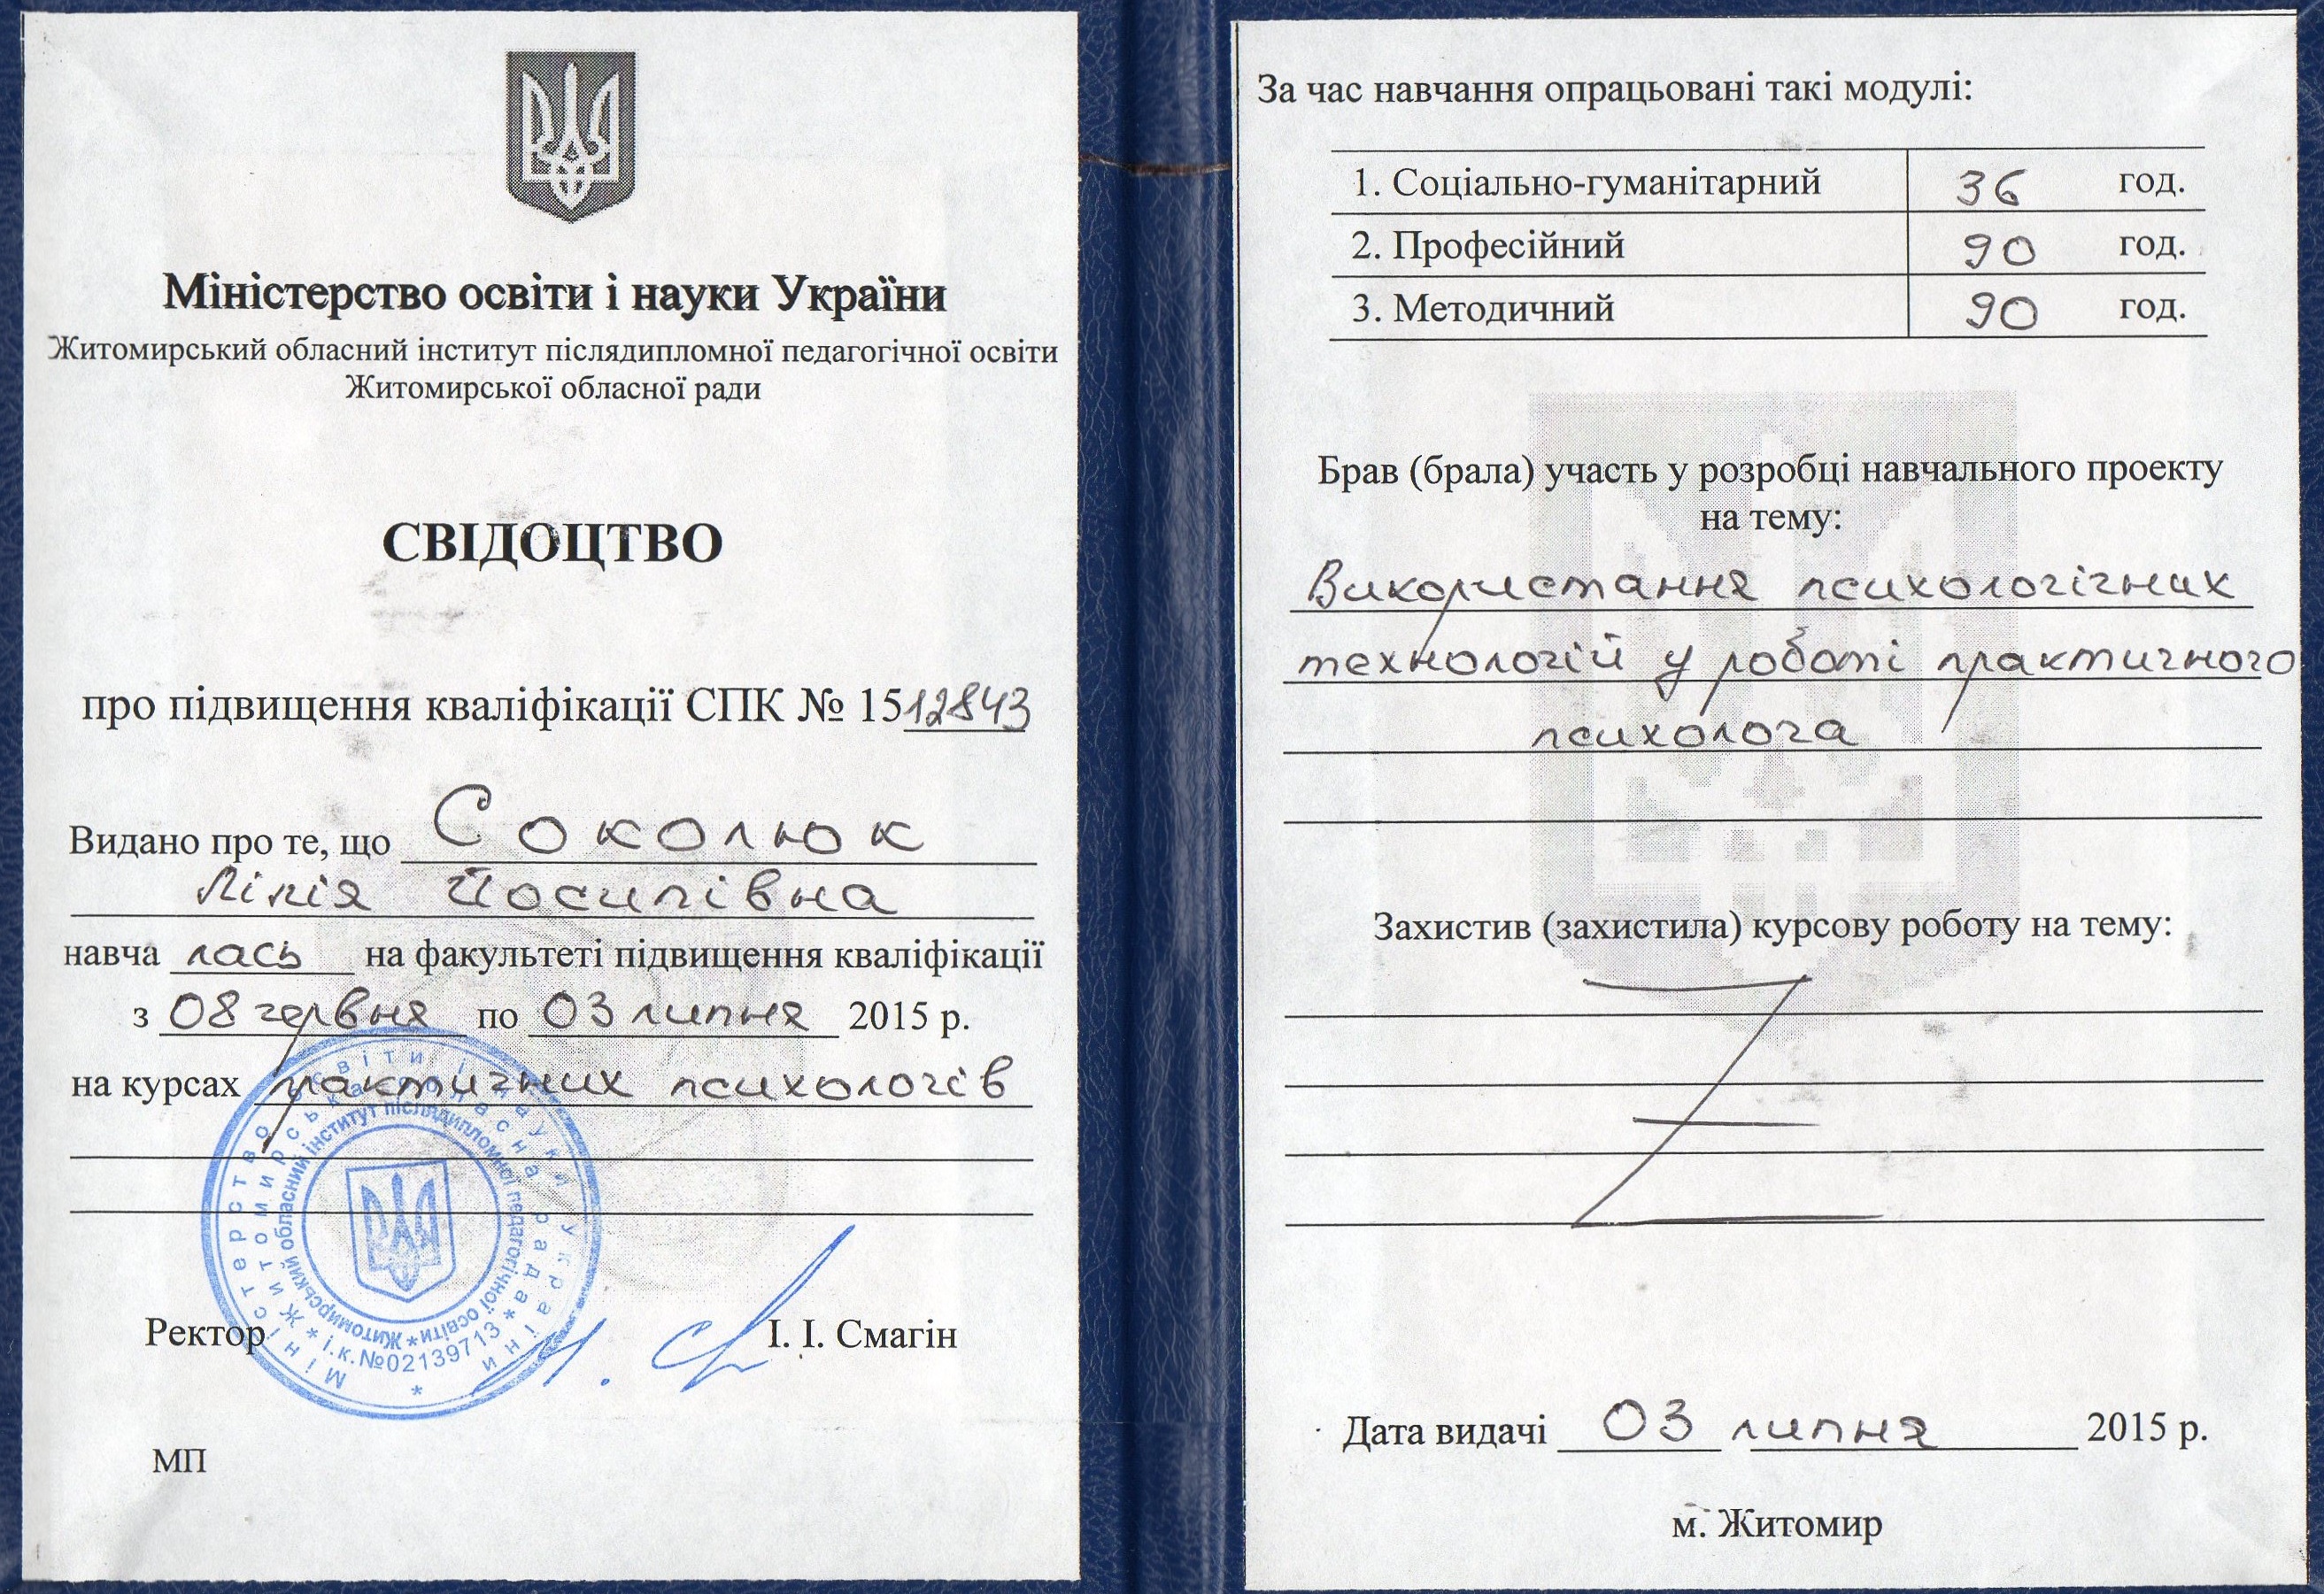 Міністерство освіти і науки України
Житомирський обласний інститут післядипломної педагогічної освіти
Житомирської обласної ради
СВІДОЦТВО
про підвищення кваліфікації СПК № 1512843
Видано про те, що Соколюк
Лілія Йосипівна
навча лась на факультеті підвищення кваліфікації
з 08 червня по 03 липня 2015 р.
на курсах практичних психологів
Міністерство освіти і науки України
Житомирська обласна рада
Житомирський обласний інститут післядипломної педагогічної освіти
* і.к.№02139713 *
Ректор І. І. Смагін
МП
За час навчання опрацьовані такі модулі:
1. Соціально-гуманітарний 36 год.
2. Професійний 90 год.
3. Методичний 90 год.
Брав (брала) участь у розробці навчального проекту
на тему:
Використання психологічних
технологій у роботі практичного
психолога
Захистив (захистила) курсову роботу на тему:
Дата видачі 03 липня 2015 р.
м. Житомир